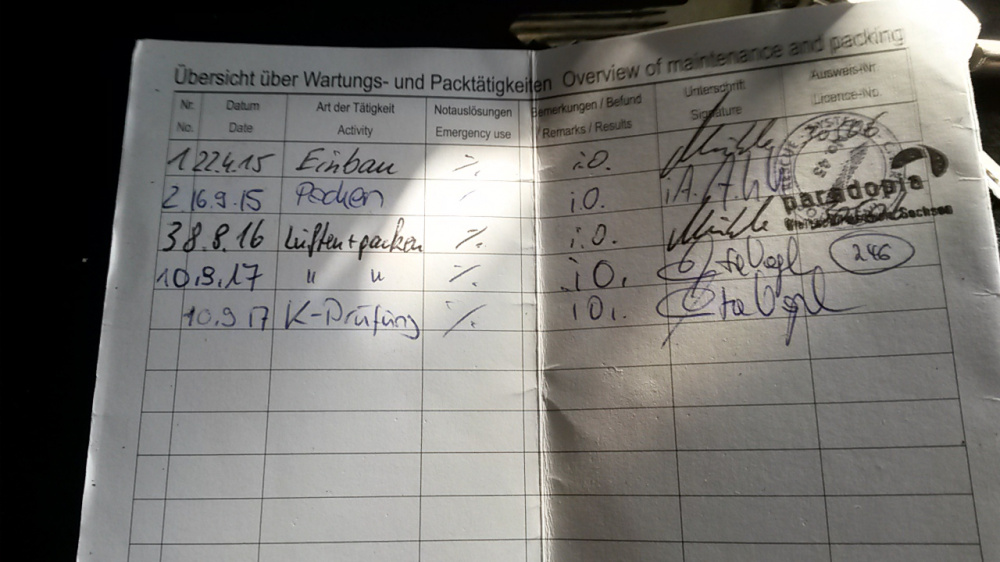 Übersicht über Wartungs- und Packtätigkeiten Overview of maintenance and packing
Nr. Datum Art der Tätigkeit Notauslösungen Bemerkungen / Befund Unterschrift Ausweis-Nr.
No. Date Activity Emergency use / Remarks / Results Signature Licence-No.
1 22.4.15 Einbau %. i.O.
2 16.9.15 Packen i.O.
paradopia
3 8.8.16 Lüften + packen %. i.O.
10.9.17 " " %. i.O. 246
10.9.17 K-Prüfung %. i.O.